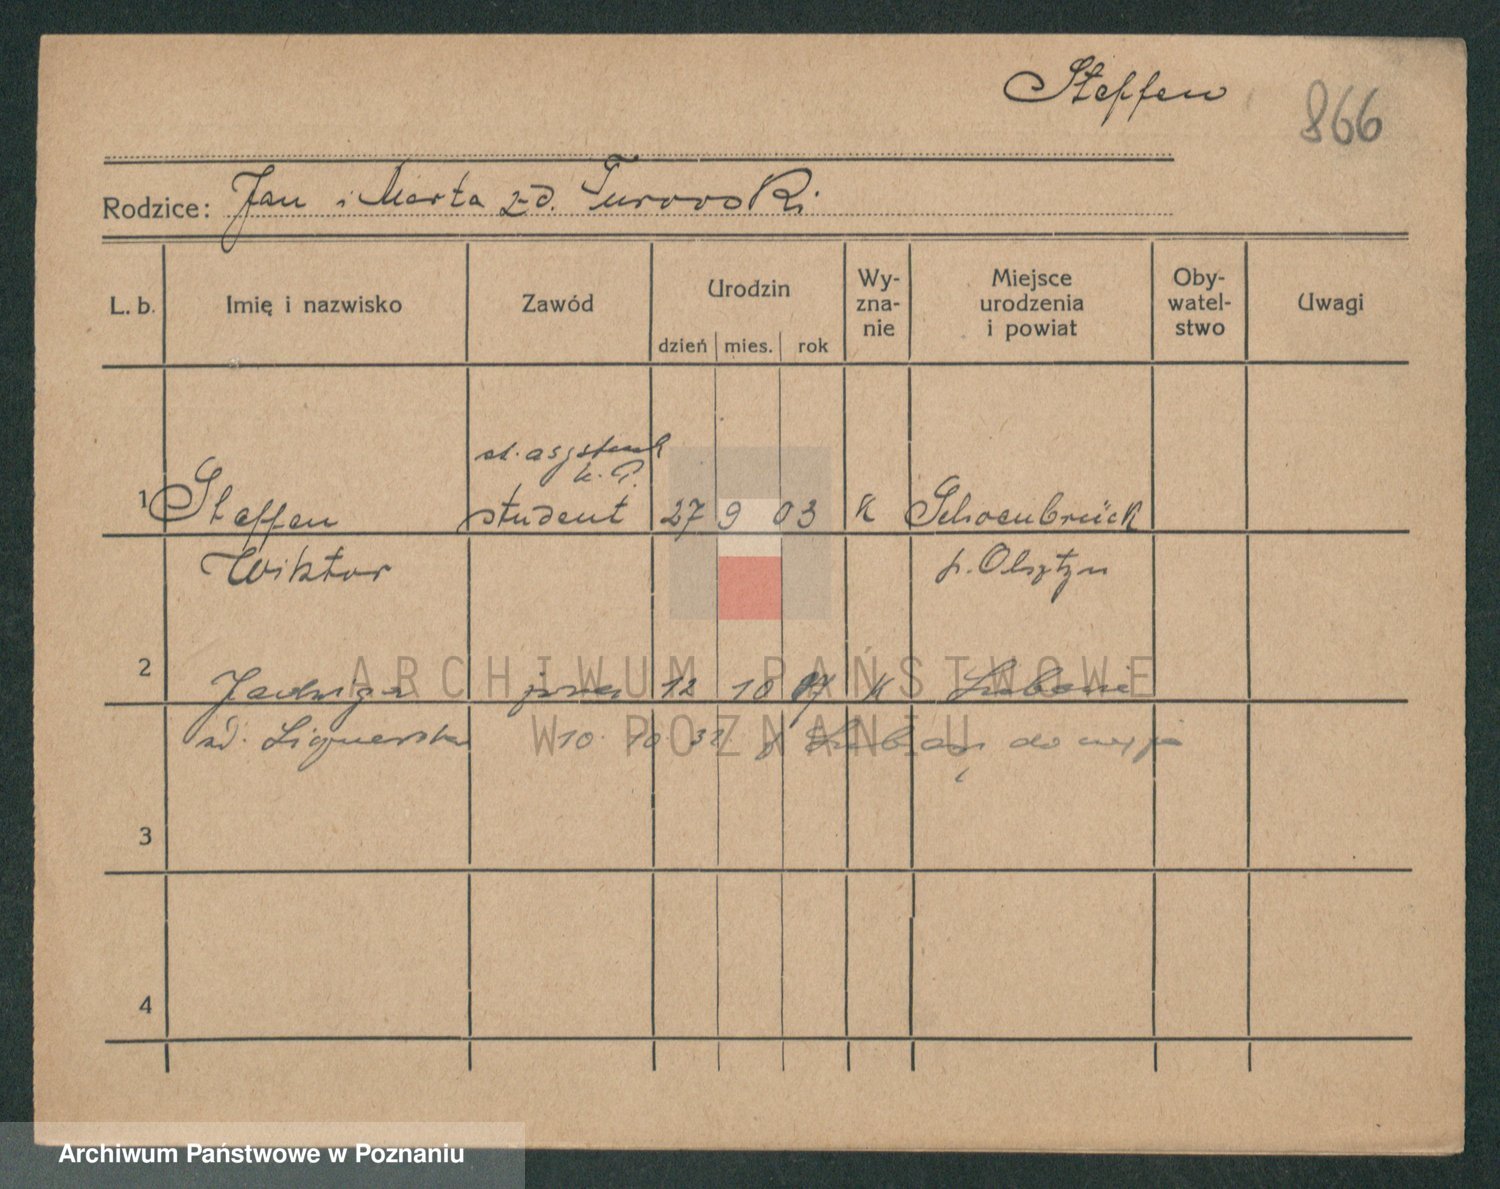 Steffen
866
Rodzice: Jan i Marta z-d. Turowski
L. b. Imię i nazwisko Zawód Urodzin dzień mies. rok Wy-zna-nie Miejsce urodzenia i powiat Oby-watel-stwo Uwagi
st. asystent
k. P.
1 Steffen student 27 9 03 K Schoenbrück
Wiktor p. Olsztyn
2 Jadwiga przy 12 10 07 K
zd. 10. 10. 32 do męża
3
4
ARCHIWUM PAŃSTWOWE
W POZNANIU
Archiwum Państwowe w Poznaniu